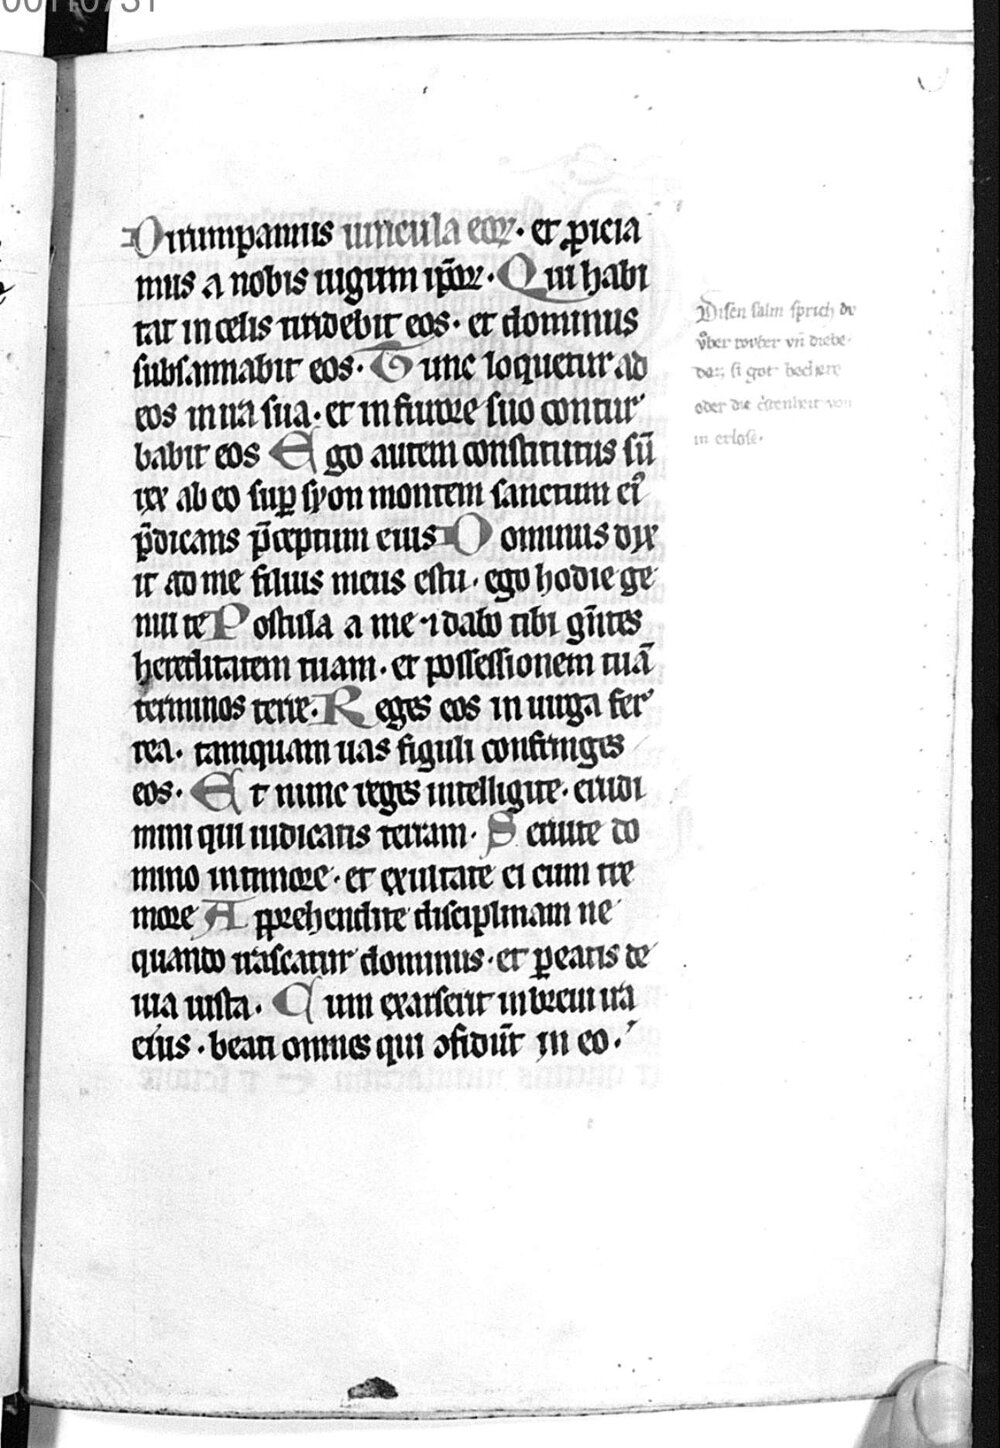 Dirumpamus uincula eoꝝ· et ꝓicia
mus a nobis iugum ip̄oꝝ· Qui habi
tat in celis irridebit eos· et dominus
subsannabit eos· Tunc loquetur ad
eos in ira sua· et in furore suo contur
babit eos Ego autem constitutus sū
rex ab eo suꝑ syon montem sanctum ei᷒
p̄dicans p̄ceptum eius Dominus dix
it ad me filius meus es tu· ego hodie ge
nui te Postula a me ⁊ dabo tibi gn̄tes
hereditatem tuam· et possessionem tuā
terminos terre· Reges eos in uirga fer
rea· tamquam uas figuli confringes
eos· Et nunc reges intelligite· erudi
mini qui iudicatis terram· Seruite do
mino in timore· et exultate ei cum tre
more Apprehendite disciplinam ne
quando irascatur dominus· et ꝑeatis de
uia iusta· Cum exarserit in breui ira
eius· beati omnes qui ꝯfidūt in eo·
Disen salm sprich du
vͦber rovber vn̄ diebe·
daz si got bechere
oder die c̄stenheit von
in erlose·